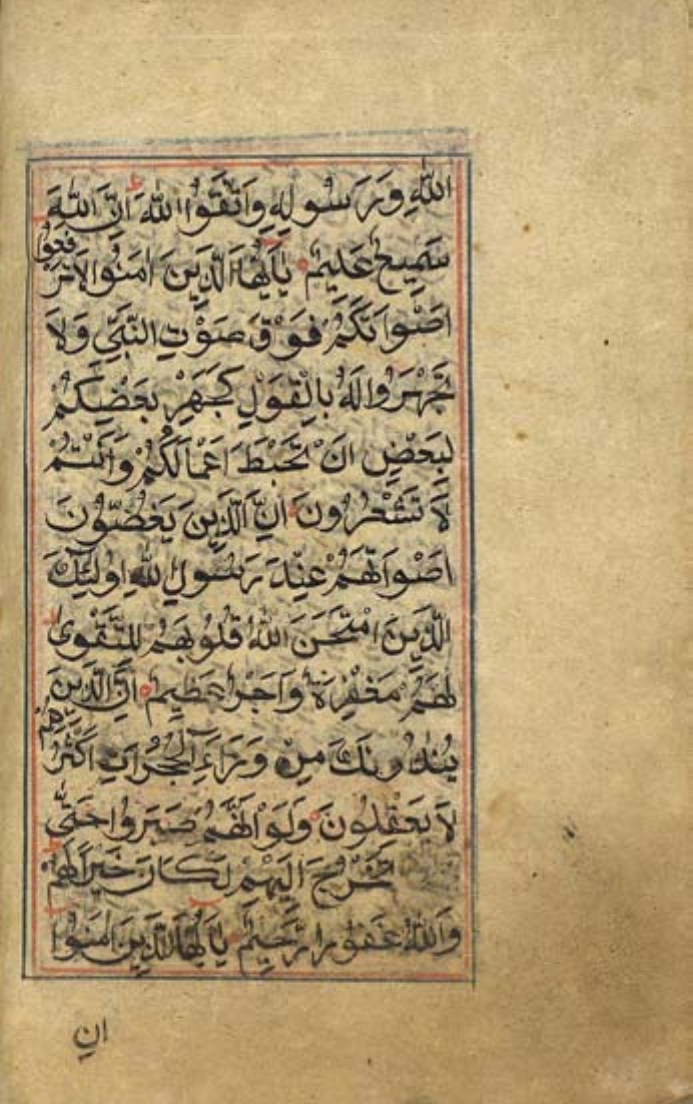 اللّٰهِ وَرَسُولِهٖ وَاتَّقُوا اللّٰهَ اِنَّ اللّٰهَ
سَمِيعٌ عَلِيمٌ يَا اَيُّهَا الَّذِينَ اٰمَنُوا لَا تَرْفَعُوا
اَصْوَاتَكُمْ فَوْقَ صَوْتِ النَّبِيِّ وَلَا
تَجْهَرُوا لَهُ بِالْقَوْلِ كَجَهْرِ بَعْضِكُمْ
لِبَعْضٍ اَنْ تَحْبَطَ اَعْمَالُكُمْ وَاَنْتُمْ
لَا تَشْعُرُونَ اِنَّ الَّذِينَ يَغُضُّونَ
اَصْوَاتَهُمْ عِنْدَ رَسُولِ اللّٰهِ اُولٰئِكَ
الَّذِينَ امْتَحَنَ اللّٰهُ قُلُوبَهُمْ لِلتَّقْوٰى
لَهُمْ مَغْفِرَةٌ وَاَجْرٌ عَظِيمٌ اِنَّ الَّذِينَ
يُنَادُونَكَ مِنْ وَرَاءِ الْحُجُرَاتِ اَكْثَرُهُمْ
لَا يَعْقِلُونَ وَلَوْ اَنَّهُمْ صَبَرُوا حَتّٰى
تَخْرُجَ اِلَيْهِمْ لَكَانَ خَيْرًا لَهُمْ
وَاللّٰهُ غَفُورٌ رَحِيمٌ يَا اَيُّهَا الَّذِينَ اٰمَنُوا
اِنْ